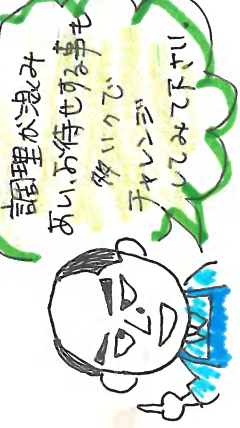 調理が混み
あい、お待せする事も
多いので
チャレンジ
してみて下さい